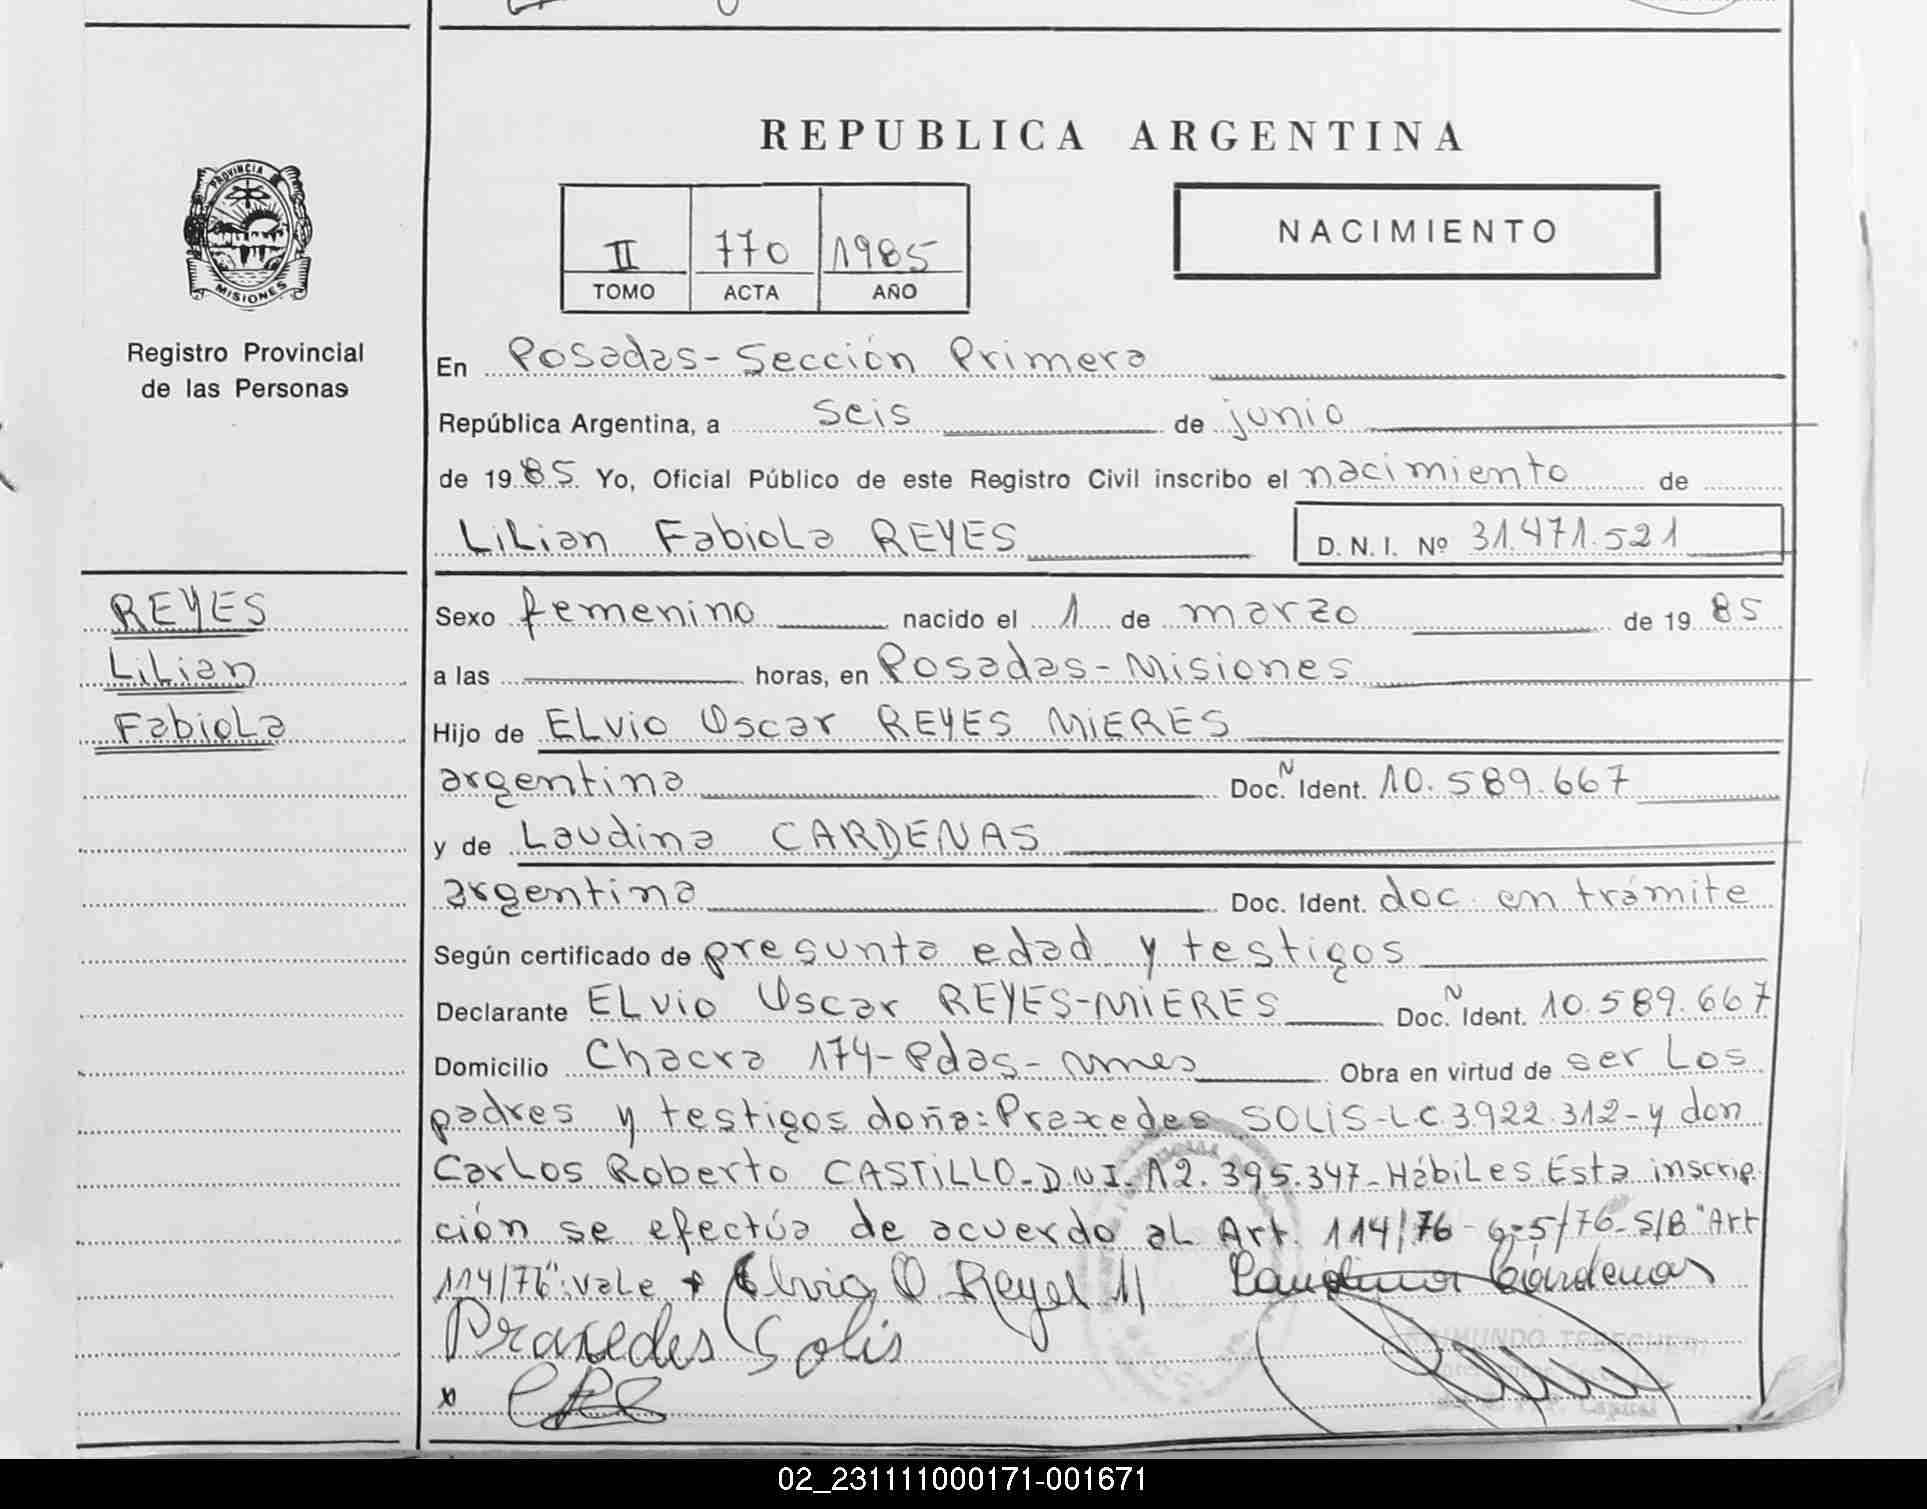 REPUBLICA ARGENTINA
PROVINCIA
MISIONES
Registro Provincial
de las Personas
II 770 1985
TOMO ACTA AÑO
NACIMIENTO
En Posadas - Sección Primera
República Argentina, a seis de junio
de 1985. Yo, Oficial Público de este Registro Civil inscribo el nacimiento de
Lilian Fabiola REYES D. N. I. Nº 31.471.521
REYES
Lilian
Fabiola
Sexo femenino nacido el 1 de marzo de 1985
a las horas, en Posadas - Misiones
Hijo de Elvio Oscar REYES MIERES
argentina Doc. N Ident. 10.589.667
y de Laudina CARDENAS
argentina Doc. Ident. doc. en trámite
Según certificado de presunta edad y testigos
Declarante Elvio Oscar REYES-MIERES Doc. N Ident. 10.589.667
Domicilio Chacra 174 - Pdas - Mnes Obra en virtud de ser los
padres y testigos doña: Praxedes SOLIS - L.C. 3.922.312 - y don
Carlos Roberto CASTILLO - D.N.I. 12.395.347 - Hábiles. Esta inscrip
ción se efectúa de acuerdo al Art. 114/76 - 6-5/76 - S/B "Art
114/76": Vale Elvio O Reyes M Laudina Cárdenas
Praxedes Solis
RAIMUNDO
Capital
02_231111000171-001671